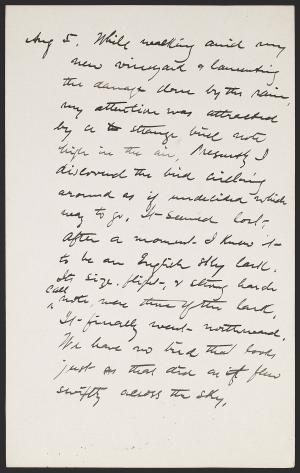 Aug 5. While walking amid my
new vineyard & lamenting
the damage done by the rain,
my attention was attracted
by a strange bird note
high in the air. Presently I
discovered the bird circling
around as if undecided which
way to go. It seemed lost.
After a moment I knew it
to be an English Sky lark.
Its size, flight, & strong harsh
call
note, were those of the lark.
It finally went northward.
We have no bird that looks
just as that did as it flew
swiftly across the sky.